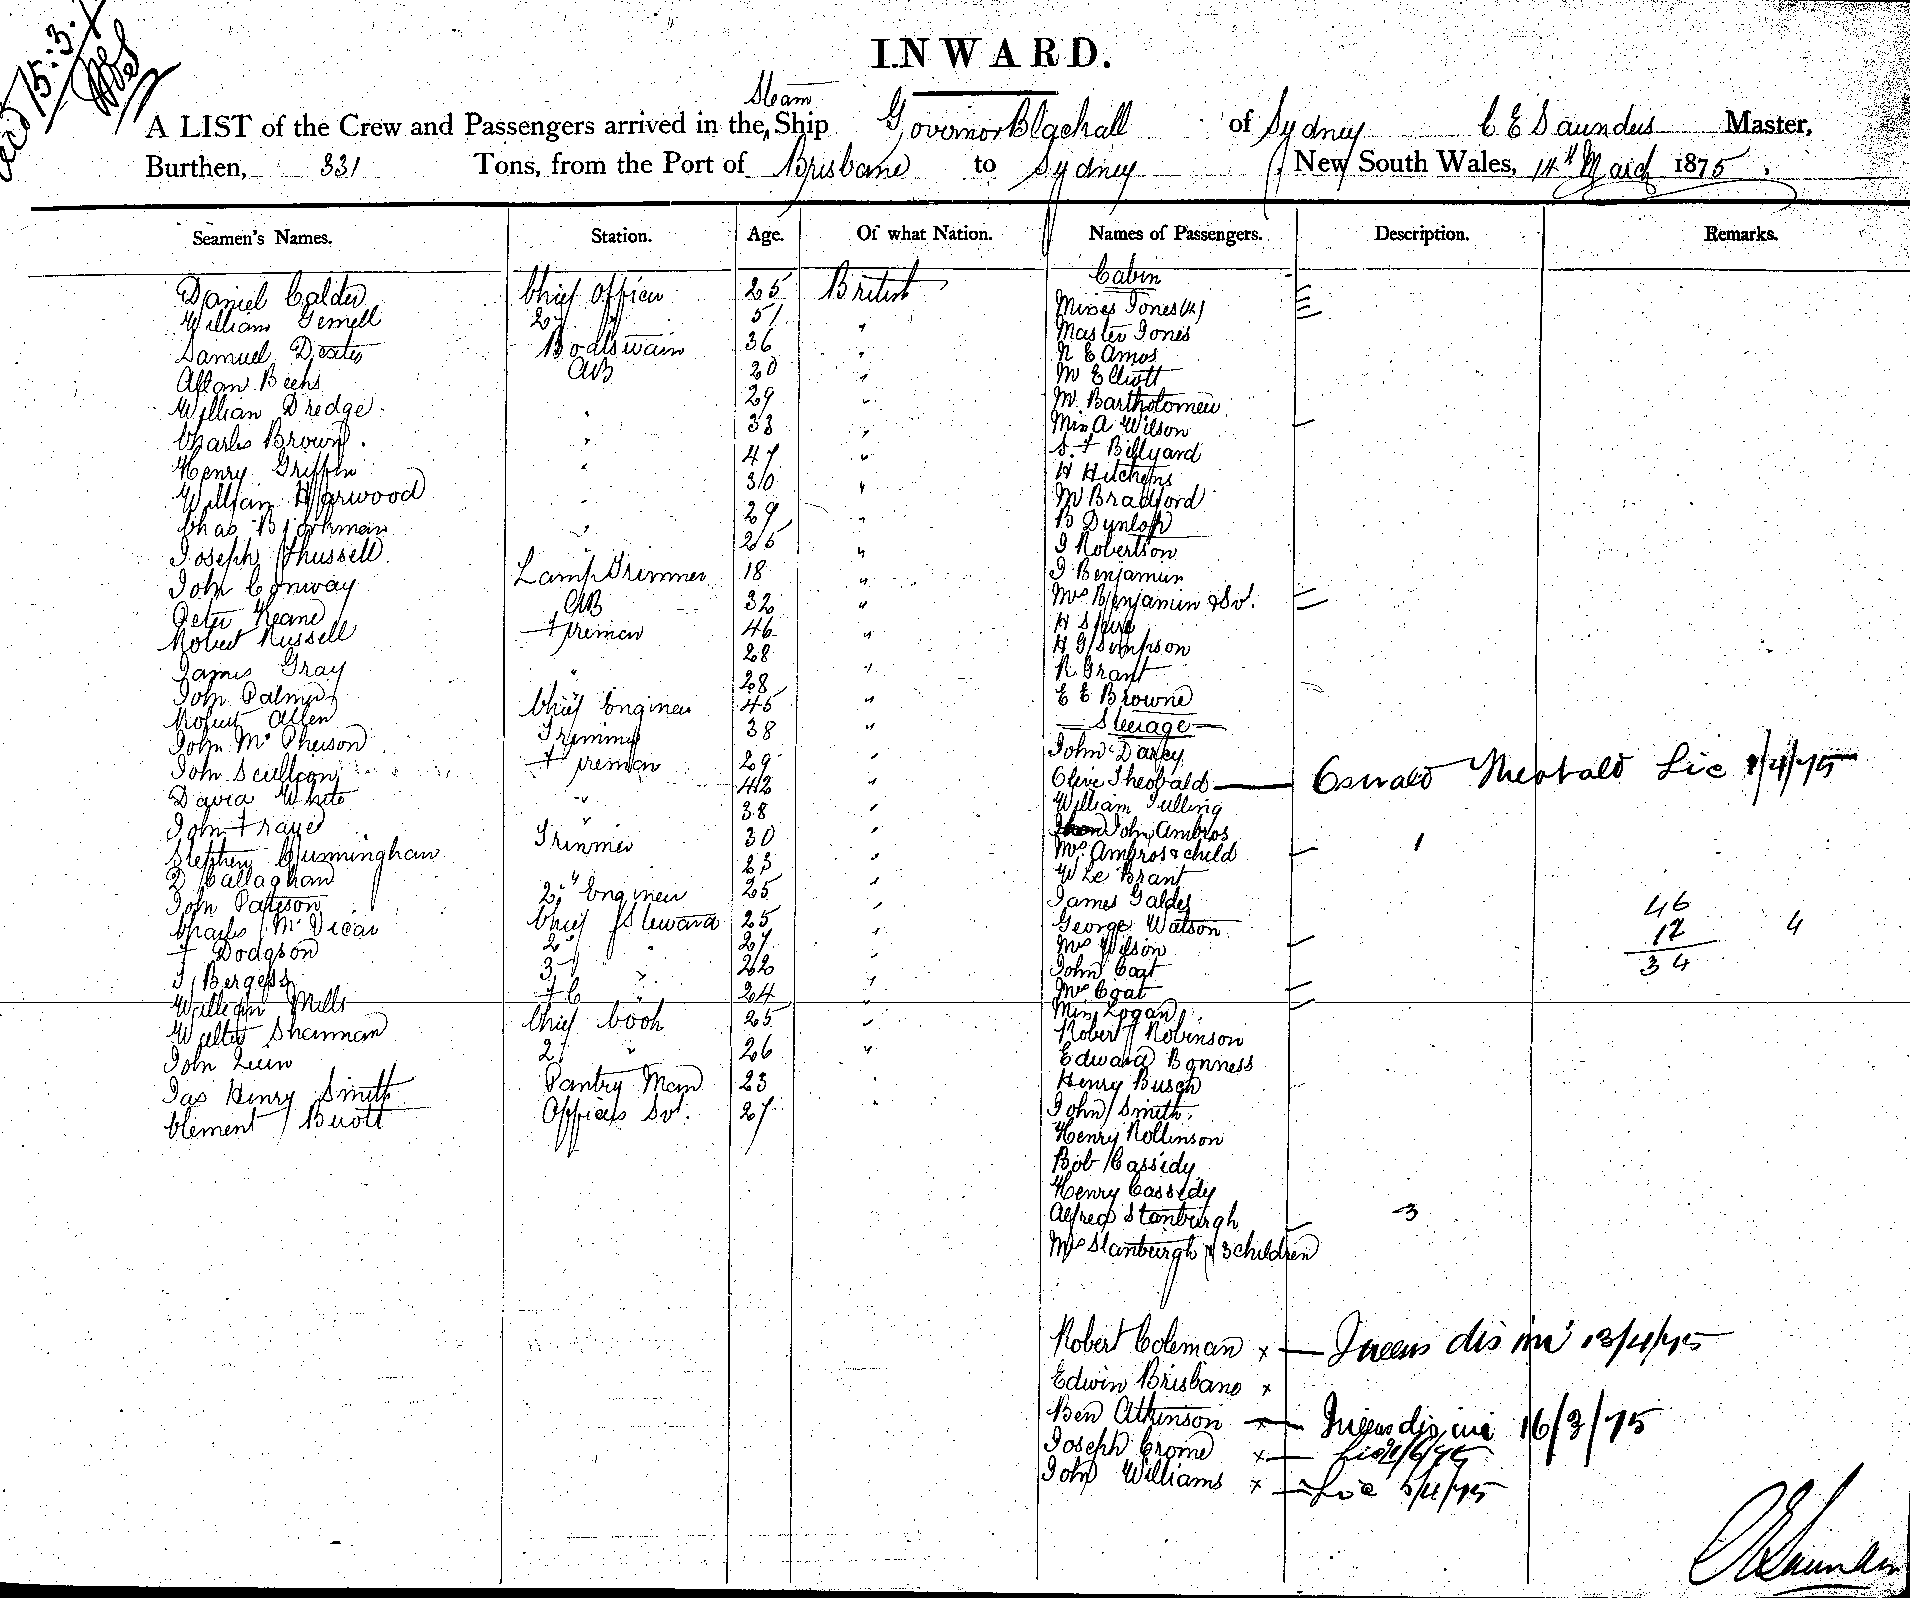 Recd 15.3.
INWARD.
A LIST of the Crew and Passengers arrived in the Steam Ship Governor Blackall of Sydney C E Saunders Master,
Burthen, 331 Tons, from the Port of Brisbane to Sydney New South Wales, 14th March 1875,
Seamen's Names. Station. Age. Of what Nation. Names of Passengers. Description. Remarks.
Daniel Calder Chief Officer 25 British
William Gemell 2d " 51 "
Samuel Dexter Boatswain 36 "
Allan AB 20 "
William Dredge. " 29 "
Charles Brown. " 33 "
Henry Griffin " 47 "
William Harwood " 30 "
Chas Bjorkman " 29 "
Joseph " 26 "
John Conway Lamp Trimmer 18 "
Peter Keane AB 32 "
Robert Russell Fireman 46 "
James Gray 28
John Palmer " 28 "
Robert Allen Chief Engineer 45 "
John McPherson Trimmer 38 "
John Fireman 29 "
David White " 42 "
John 38 "
Stephen Cunningham Trimmer 30 "
Callaghan 23 "
John Paterson 2nd Engineer 25 "
Charles McVicar Chief Steward 25 "
F Dodgson 2d " 27 "
Bergess 3d " 22 "
William Mills " 24 "
Walter Sharman Chief Cook 25 "
John 2d " 26 "
Jas Henry Smith Pantry Man 23 "
Clement Officers Svt. 27 "
Cabin
Misses Jones (2)
Master Jones
R E Amos
M Elliott
M Bartholomew
Miss A Wilson
S F Billyard
H Hitchens
M Bradford
B Dunlop
J Robertson
J Benjamin
Mrs Benjamin & Svt.
H
H G Simpson
R Grant
E E Browne
Steerage
John Darcy
Olive Theobald — Oswald Theobald Lic 1/4/75
William Tulling
John Ambros
Mrs Ambros & child 1
W Le Brant
James
George Watson
Mrs Wilson
John Coat
Mrs Coat
Miss Logan
Robert Robinson
Edward Bonness
Henry Busch
John Smith.
Henry Rollinson
Bob Cassidy
Henry Cassidy
Alfred Stanburgh 3
Mrs Stanburgh & 3 children
46
12 4
34
Robert Coleman x — Queens dis 13/4/75
Edwin Brisbane x
Ben Atkinson — Queens dis 16/3/75
Joseph Crome x — Lic
John Williams x — Lic
C E Saunders